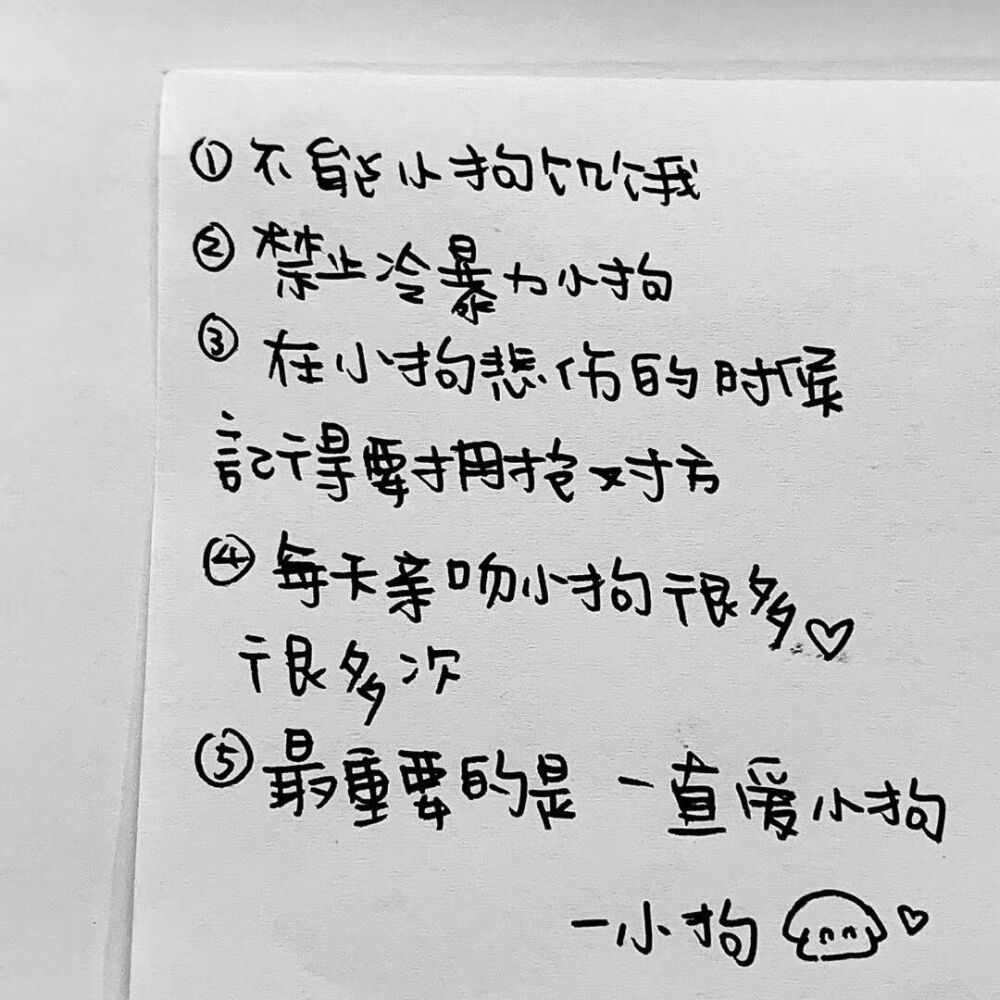 ①不能小狗饥饿
②禁止冷暴力小狗
③在小狗悲伤的时候
記得要拥抱对方
④每天亲吻小狗很多♡
很多次
⑤最重要的是一直爱小狗
一小狗♡